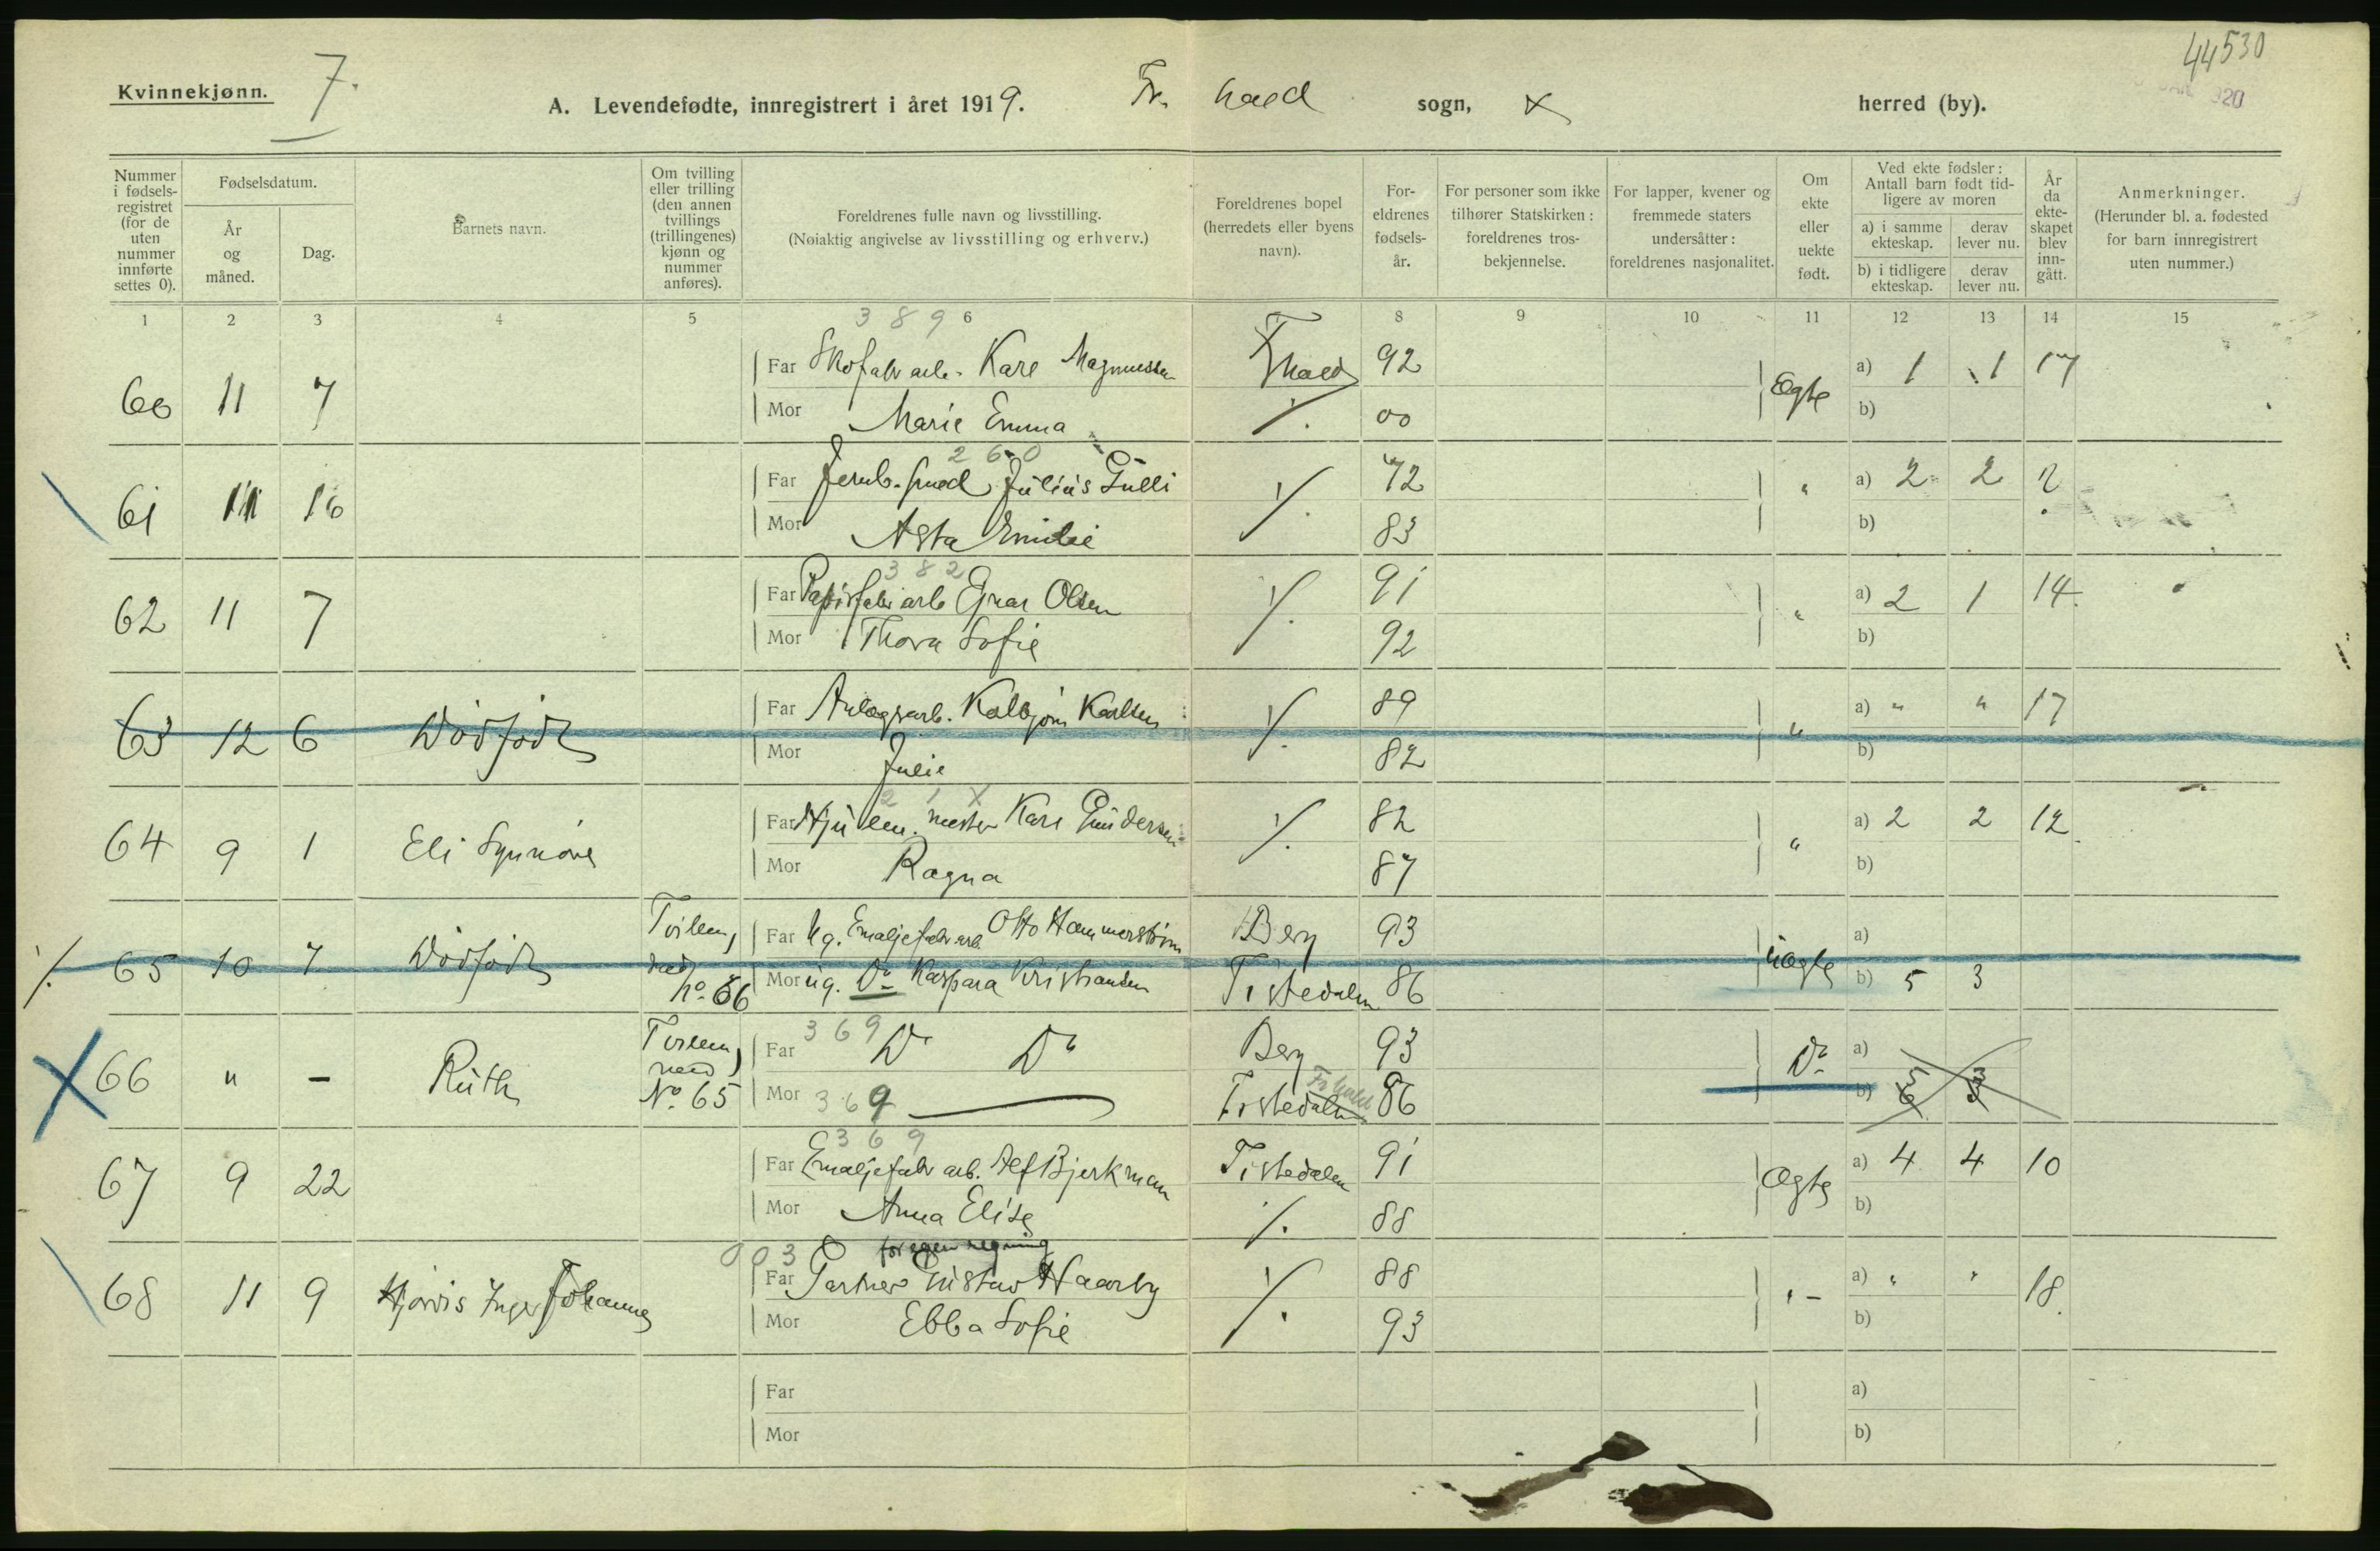 44530
Kvinnekjønn.
7.
A. Levendefødte, innregistrert i året 1919.
Fr. hald sogn, x herred (by).
JAN. 1920
Nummer i fødsels-registret (for de uten nummer innførte settes 0).
Fødselsdatum.
År og måned.
Dag.
Barnets navn.
Om tvilling eller trilling (den annen tvillings (trillingenes) kjønn og nummer anføres).
Foreldrenes fulle navn og livsstilling.
(Nøiaktig angivelse av livsstilling og erhverv.)
Foreldrenes bopel (herredets eller byens navn).
For-eldrenes fødsels-år.
For personer som ikke tilhører Statskirken: foreldrenes tros-bekjennelse.
For lapper, kvener og fremmede staters undersåtter: foreldrenes nasjonalitet.
Om ekte eller uekte født.
Ved ekte fødsler: Antall barn født tid-ligere av moren
a) i samme ekteskap.
derav lever nu.
b) i tidligere ekteskap.
derav lever nu.
År da ekte-skapet blev inn-gått.
Anmerkninger.
(Herunder bl. a. fødested for barn innregistrert uten nummer.)
1 2 3 4 5 6 8 9 10 11 12 13 14 15
389
60 11 7 Far Skofabr arb. Karl Magnussen Fhald 92 Ægte a) 1 1 17
Mor Marie Emma ./. 00 b)
260
61 11 16 Far Jernb. smed Julius Gulli ./. 72 " a) 2 2 ?
Mor Asta Emilie 83 b)
382
62 11 7 Far Papirfabr arb Ejnar Olsen ./. 91 " a) 2 1 14.
Mor Thora Sofie 92 b)
63 12 6 Dødfødt Far Anlægsarb. Kolbjørn Karlsen ./. 89 " a) " " 17
Mor Julie 82 b)
21X
64 9 1 Eli Synnøve Far Hjulm. mester Karl Gundersen ./. 82 " a) 2 2 12
Mor Ragna 87 b)
./. 65 10 7 Dødfødt Tvilling med No. 66 Far Ug. Emaljefabr arb Otto Hammerstrøm Berg 93 Uægte a)
Mor ug. Do Kaspara Kristiansen Tistedalen 86 b) 5 3
66 " – Ruth Tvilling med No. 65 Far 369 Do Do Berg 93 Do a)
Mor 369 Tistedalen Fr.hald 86 b) 5 3
369
67 9 22 Far Emaljefabr arb. Alf Bjerkman Tistedalen 91 Ægte a) 4 4 10
Mor Anna Elise ./. 88 b)
003 for egen regning
68 11 9 Hjørdis Inger Johanne Far Gartner Gustav Haarby ./. 88 " – a) " " 18.
Mor Ebba Sofie 93 b)
Far a)
Mor b)